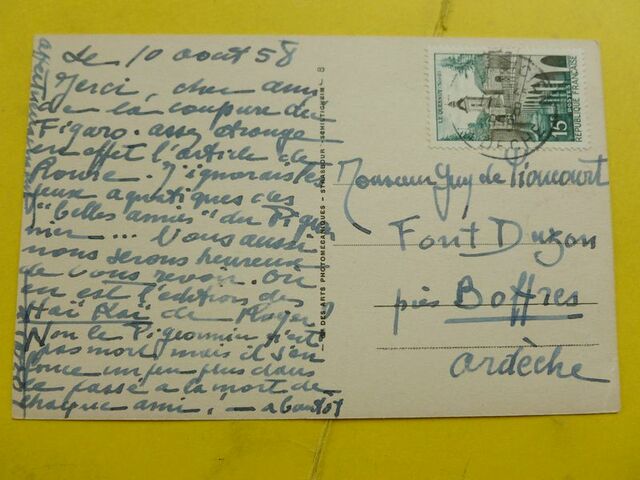 Le 10 août 58
Merci, cher ami
de la coupure du
Figaro. assez étrange
en effet l'article de
J'ignorais les
jeux aquatiques des
"belles amies" du Pigeon
nier... Vous aussi
nous serons heureux
de vous revoir. Où
en est l'édition des
Haï Kaï de Roger?
Non le Pigeonnier n'est
pas mort mais il s'en
fonce un peu plus dans
le passé à la mort de
chaque ami! — a bientôt
DES ARTS PHOTOMÉCANIQUES - STRASBOUR -SCHILTIGHEIM - 8
LE QUESNOY (NORD)
15F
POSTES
REPUBLIQUE FRANÇAISE
Monsieur Guy de
Font Duzon
près Boffres
Ardèche